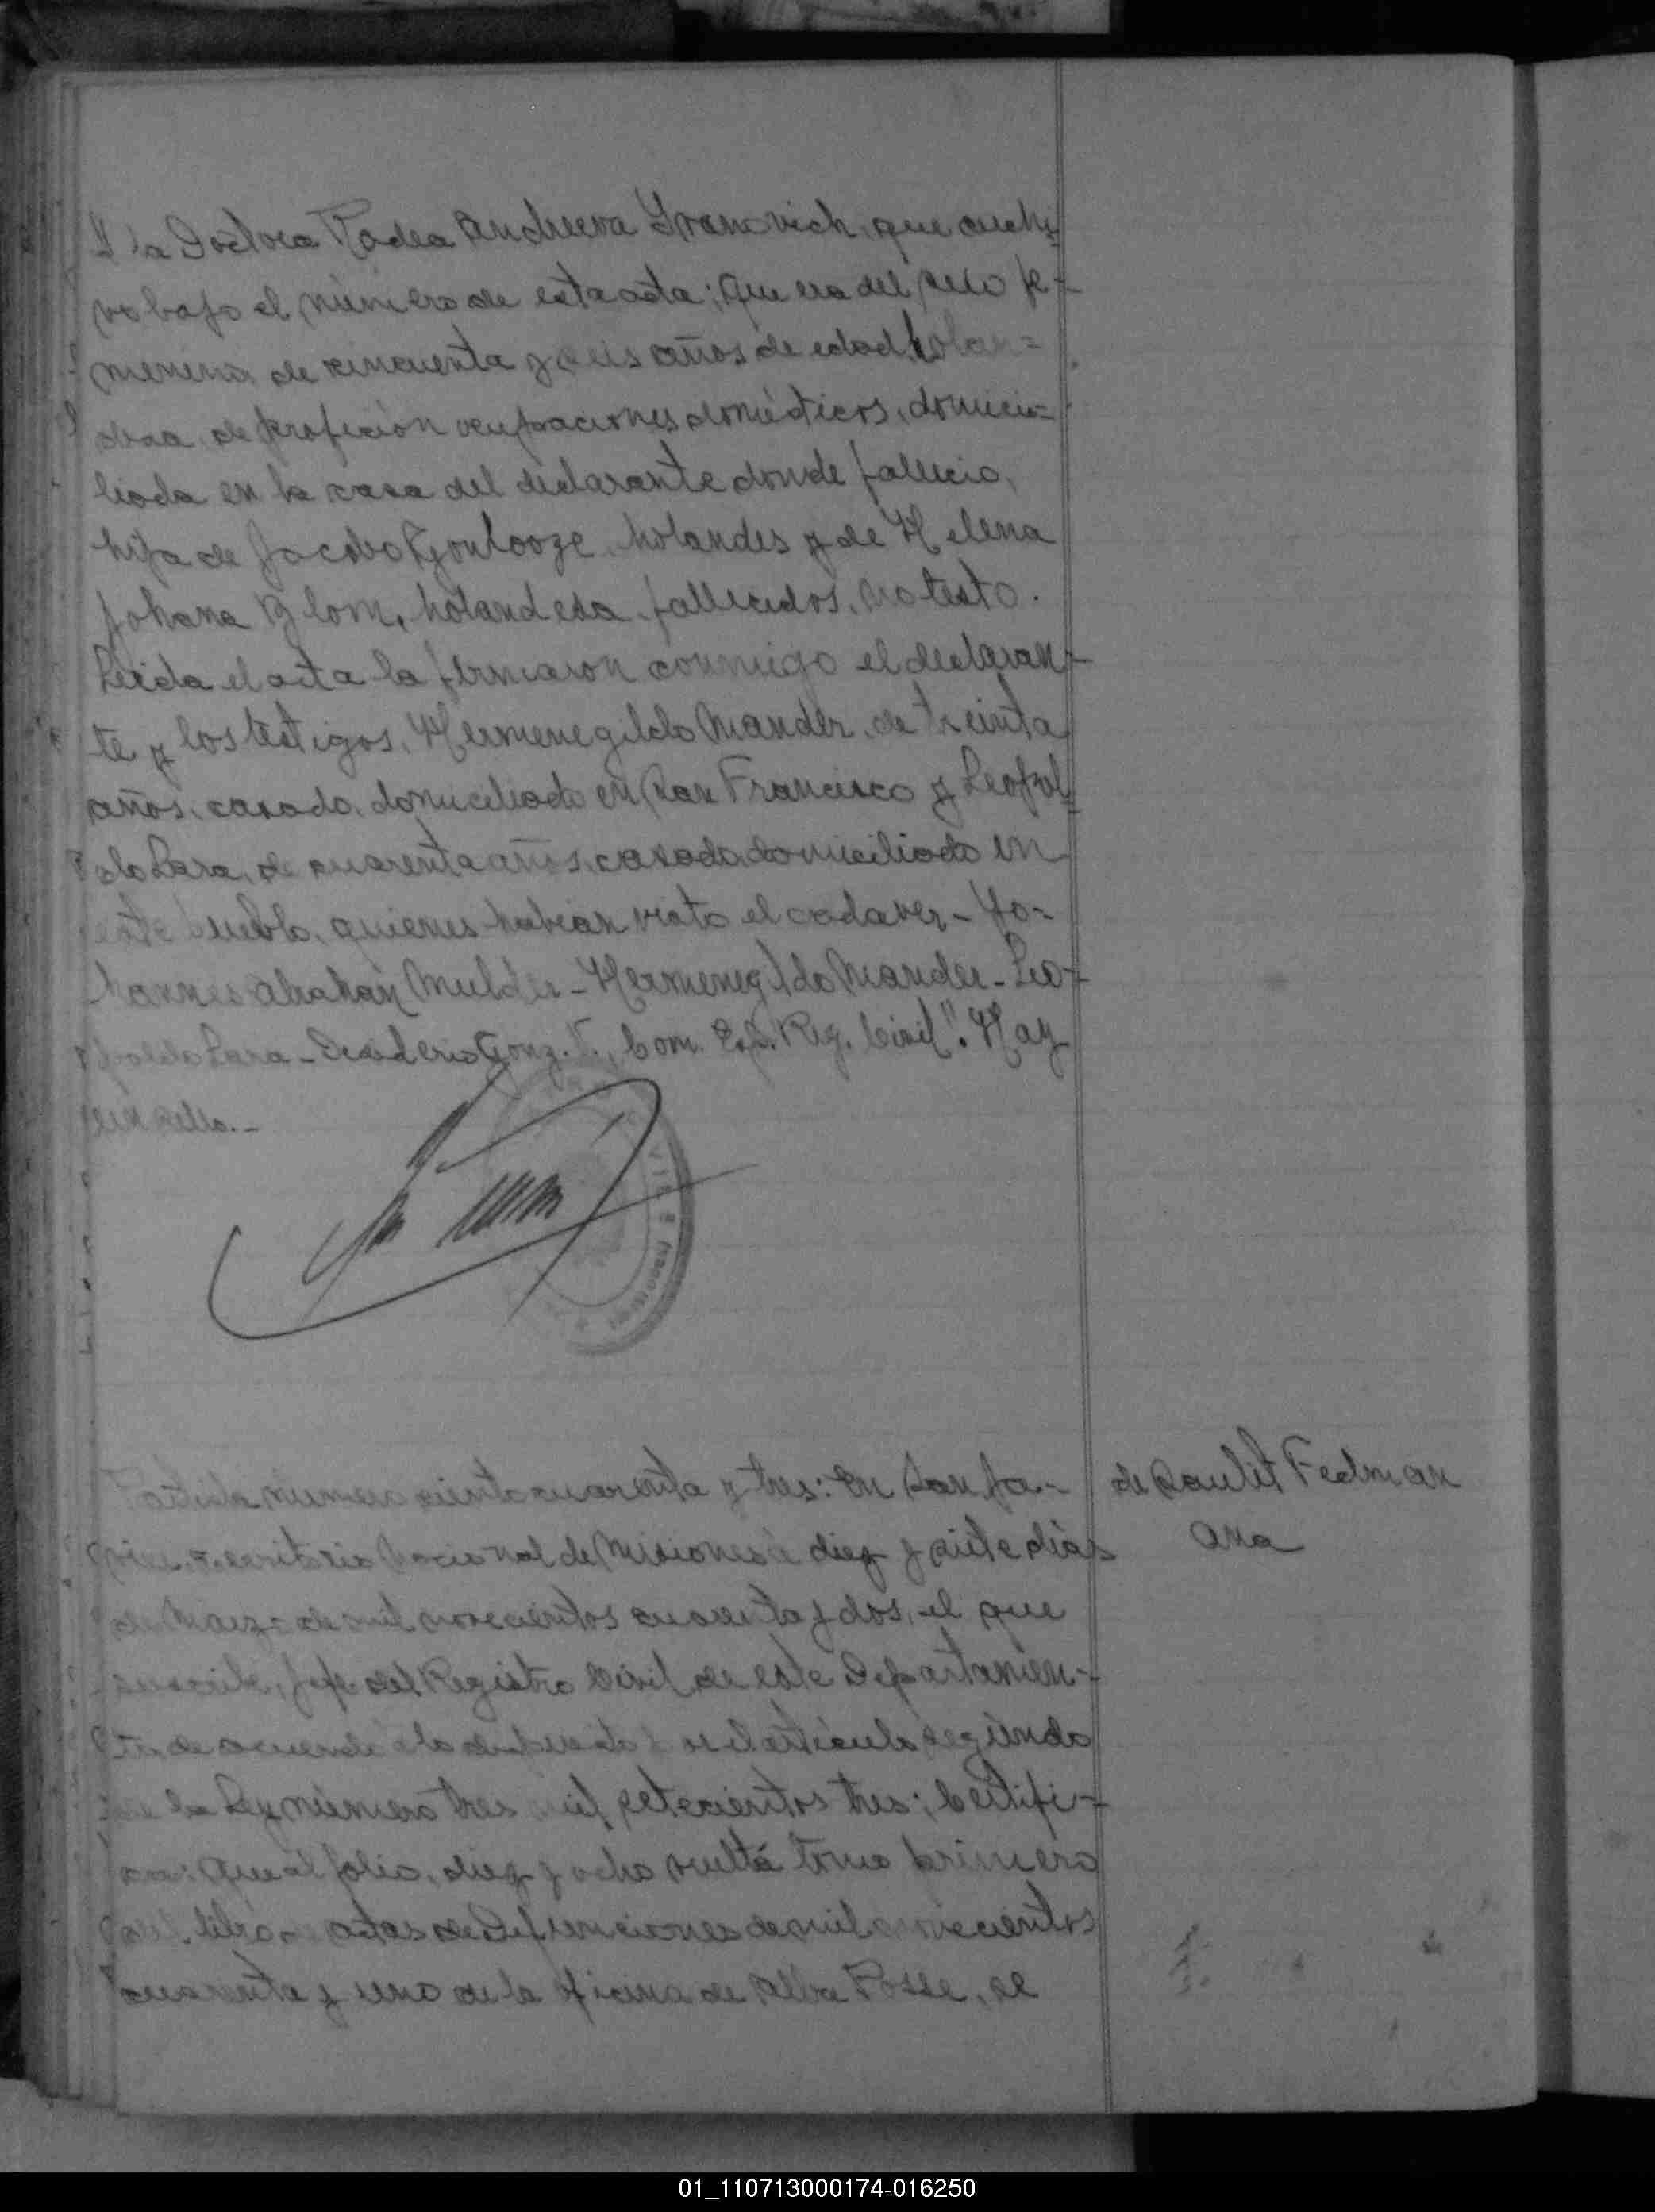 la Doctora Radea Andreeva Yranovich, que archi-
vo bajo el número de esta acta; Que era del sexo fe-
menino, de cincuenta y seis años de edad, holan=
desa, de profesión ocupaciones domésticos, domici=
liada en la casa del declarante donde fallecio,
hija de Jacobo Gonlooze, holandes y de Helena
Johana Blom, holandesa, fallecidos, no testo.
Leída el acta la firmaron conmigo el declaran-
te y los testigos, Hermenegildo Mander, de treinta
años, casado, domiciliado en San Francisco y Leopol-
do Lara, de cuarenta años, casado, domiciliado en
este pueblo, quienes habian visto el cadaver - Jo=
hannes Abahan Mulder - Hermenegildo Mander - Leo-
poldo Lara - Desiderio Gonz. T., Com. Esp. Reg. Civil". Hay
un sello.-
Partida número ciento cuarenta y tres: En San Ja-
vier, Territorio Nacional de Misiones á diez y siete días
de Marzo de mil novecientos cuarenta y dos, el que
suscribe, Jefe del Registro Civil de este Departamen-
to, de acuerdo á lo dispuesto en el artículo segundo
de la Ley número tres mil setecientos tres; Certifi-
ca: Que al folio, diez y ocho vuelta tomo primero
del libro de actas de Defunciones de mil novecientos
cuarenta y uno de la oficina de Alba Posse, se
de Saulit Fedman
Ana
01_110713000174-016250